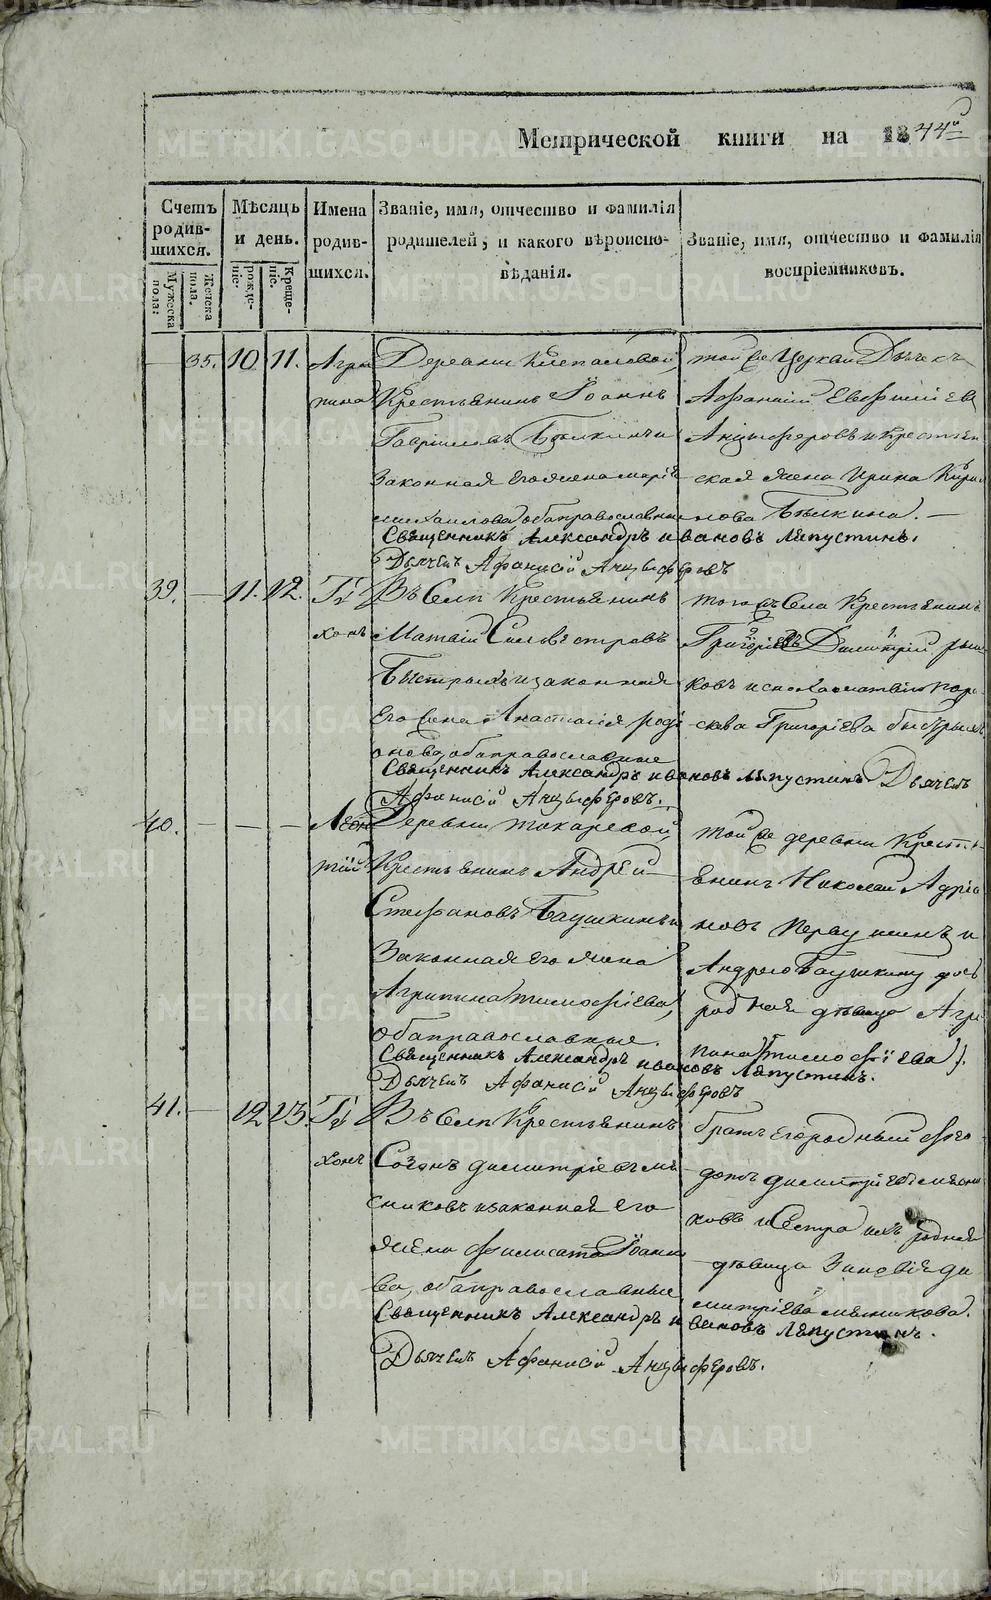 Метрической книги на 1844й
Счетъ родив-шихся.
Мужеска пола:
Женска пола.
Мѣсяцъ и день.
рожде-ніе.
Креще-ніе.
Имена родив-шихся.
Званіе, имя, отчество и фамилія
родителей, и какого вѣроиспо-
вѣданія.
Званіе, имя, отчество и фамилія
воспріемниковъ.
— 35. 10 11. Агри
пина
Деревни Клепаловой
Крестьянинъ Іоаннъ
Гавріиловъ Бѣлкинъ и
законная его жена Марія
Михаилова, оба православные
той же Церкви Дьячекъ
Афанасій Евфиміевъ
Анцыферовъ и крестьян
ская жена Ирина Кирил
лова Бѣлкина. —
Священникъ Александръ Ивановъ Ляпустинъ.
Дьячекъ Афанасій Анцыферовъ
39. — 11. 12. Ти
хонъ
Въ Селѣ Крестьянинъ
Матвѣй Сильвестровъ
Быстрыхъ и законная
его жена Анастасія Роді
онова, оба православные
того жъ Села Крестьянинъ
Григорьевъ Димитрій
ковъ и
Григоріева Быстрыхъ
Священникъ Александръ Ивановъ Ляпустинъ Дьячекъ
Афанасій Анцыферовъ.
40. — — — Леон
тій
Деревни Токаревой
Крестьянинъ Андрей
Стефановъ Баушкинъ и
законная его жена
Агрипина Тимофіева,
оба православные.
той же деревни Крестъ
янинъ Николай Адріа
новъ Первушинъ и
Андрею Баушкину
родная дѣвица Агри
пина Тимофіева).
Священникъ Александръ Ивановъ Ляпустинъ.
Дьячекъ Афанасій Анцыферовъ
41. — 12 13. Ти
хонъ
Въ Селѣ Крестьянинъ
Созонъ Димитріевъ Мѣ
сниковъ и законная его
жена Филисата Іоанно
ва, оба православные,
братъ его родный Фего
донъ Димитріевъ Мясни
ковъ и Сестра ихъ родная
дѣвица Зиновія Ди
митріева Мясникова.
Священникъ Александръ Ивановъ Ляпустинъ.
Дьячекъ Афанасій Анцыферовъ.
METRIKI.GASO-URAL.RU